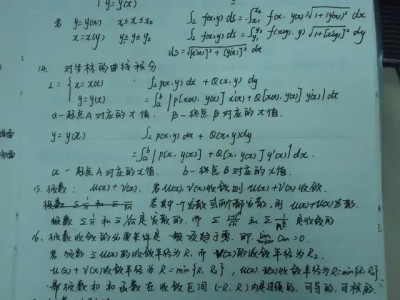 y = y(x)
若 y=y(x) x₁≤x≤x₂ ∫_L f(x,y) ds = ∫_{x₁}^{x₂} f(x, y(x)) √(1+[y'(x)]²) dx
x=x(y) y₁≤y≤y₂ ∫_L f(x,y) ds = ∫_{y₁}^{y₂} f(x(y), y) √(1+[x'(y)]²) dy
ds=√([x'(t)]²+[y'(t)]²) dt
14. 对坐标的曲线积分
L = { x=x(t) ∫_L P(x,y) dx + Q(x,y) dy
y=y(t) = ∫ {P[x(t), y(t)] x'(t) + Q[x(t), y(t)] y'(t)} dt
α—起点A对应的t值. β—终点B对应的t值.
y=y(x) ∫_L P(x,y)dx + Q(x,y)dy
= ∫_a^b {P[x, y(x)] + Q[x, y(x)] y'(x)} dx.
a—起点A对应的x值. b—终点B对应的x值.
15. 级数: u(x)+v(x). 若u(x), v(x)收敛则u(x)+v(x)收敛.
若其中一个发散或两个都发散, 则u(x)+v(x)发散.
级数 Σ 1/n 和 Σ 是发散的. 而 Σ 和 Σ 是收敛的
16. 级数收敛的必要条件是一般项趋于零. 即 lim an=0.
若级数 Σu(x)的收敛半径为R₁ 而 v(x)的收敛半径为R₂.
u(x)+v(x)收敛半径为R=min{R₁ R₂}, u(x)·v(x)收敛半径为R=min{R₁ R₂}
幂级数和和函数在收敛区间(-R, R)内是连续的. 可导的. 可积的.